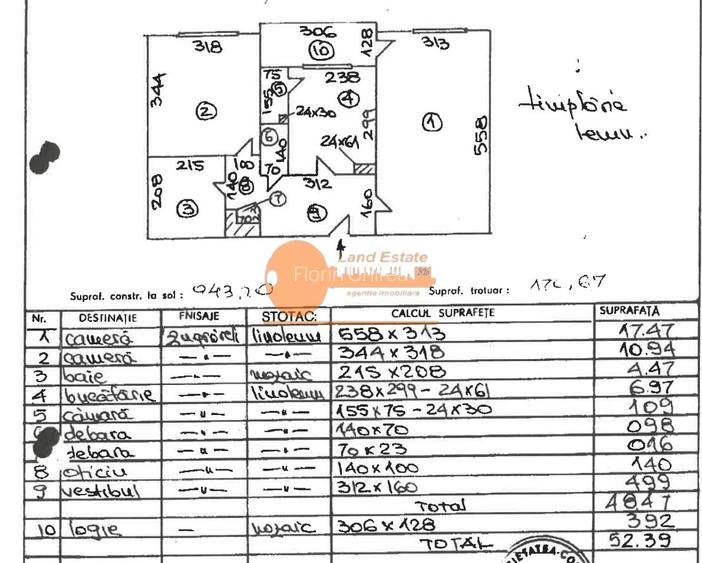 306
318
10
128
313
75
238
344
5
4
155
2
24x30
299
1
558
6
24x61
215
100
140
70
312
208
140
8
7
160
3
9
tîmplărie
lemn..
Land Estate
agentie imobiliara
Supraf. constr. la sol : 943,20 Supraf. trotuar : 174,67
Nr. DESTINAȚIE FNISAJE STOTAC: CALCUL SUPRAFEȚE SUPRAFAȚĂ
1 cameră zugrăveli linoleum 558 x 313 17.47
2 cameră —"— —"— 344 x 318 10.94
3 baie —"— mozaic 215 x 208 4.47
4 bucătărie —"— linoleum 238 x 299 - 24 x 61 6.97
5 cămară —"— —"— 155 x 75 - 24 x 30 109
debara —"— —"— 140 x 70 098
debara —"— —"— 70 x 23 016
8 oficiu —"— —"— 140 x 100 140
9 vestibul —"— —"— 312 x 160 499
Total 4847
10 logie — mozaic 306 x 128 392
TOTAL 52.39